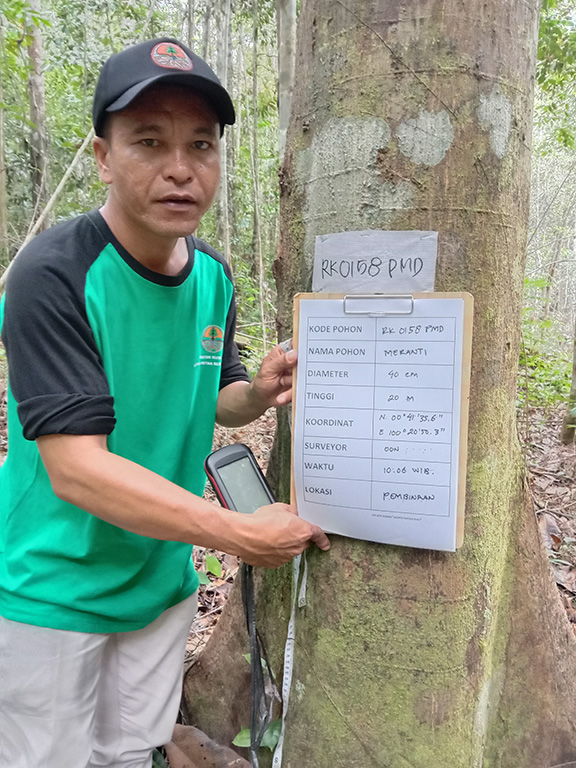 RK0158 PMD
KODE POHON RK 0158 PMD
NAMA POHON MERANTI
DIAMETER 40 cm
TINGGI 20 M
KOORDINAT N. 00°41'35.6"
E. 100°20'50.3"
SURVEYOR OON
WAKTU 10:06 WIB.
LOKASI PEMBINAAN